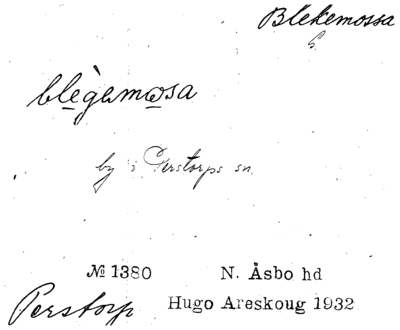 Blekemossa
G.
blègəmωsa
by i Perstorps sn.
№ 1380 N. Åsbo hd
Perstorp Hugo Areskoug 1932